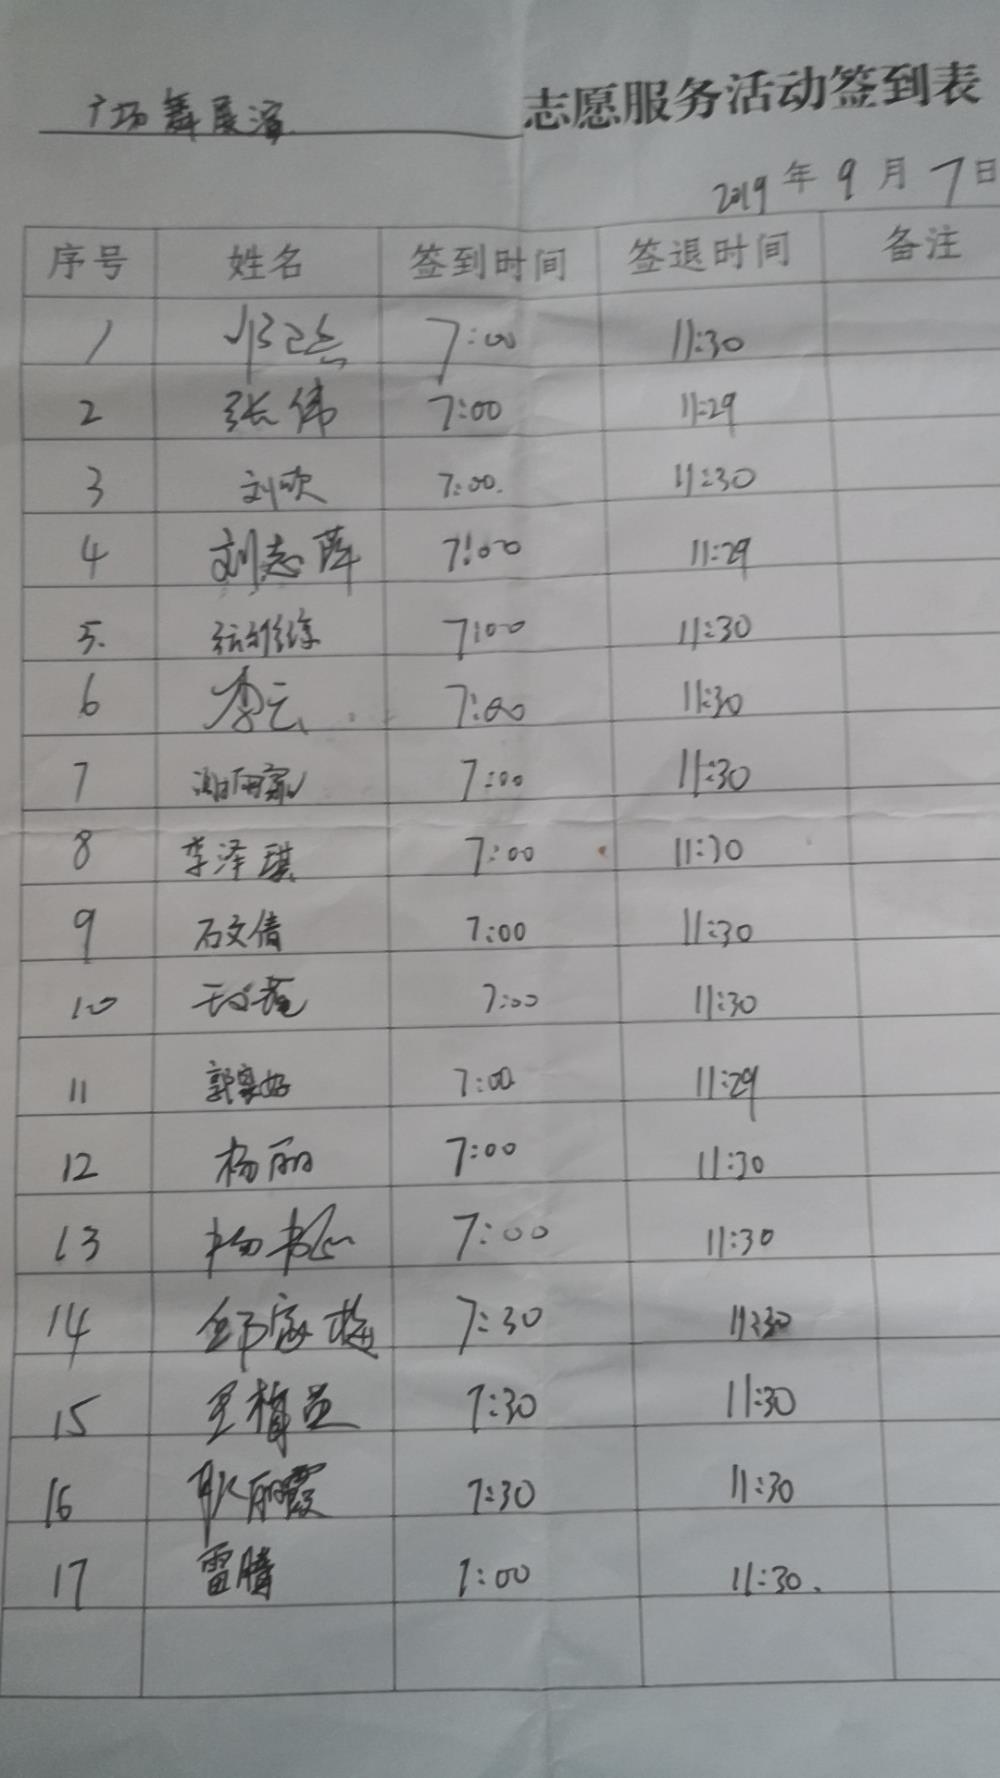 广场舞展演 志愿服务活动签到表
2019年9月7日
序号 姓名 签到时间 签退时间 备注
1 7:00 11:30
2 张伟 7:00 11:29
3 刘欣 7:00. 11:30
4 刘志萍 7:00 11:29
5. 7:00 11:30
6 李云 7:00 11:30
7 7:00 11:30
8 李泽琪 7:00 11:30
9 石文倩 7:00 11:30
10 7:00 11:30
11 7:00 11:29
12 杨丽 7:00 11:30
13 7:00 11:30
14 7:30 11:30
15 7:30 11:30
16 耿丽霞 7:30 11:30
17 雷腾 7:00 11:30.